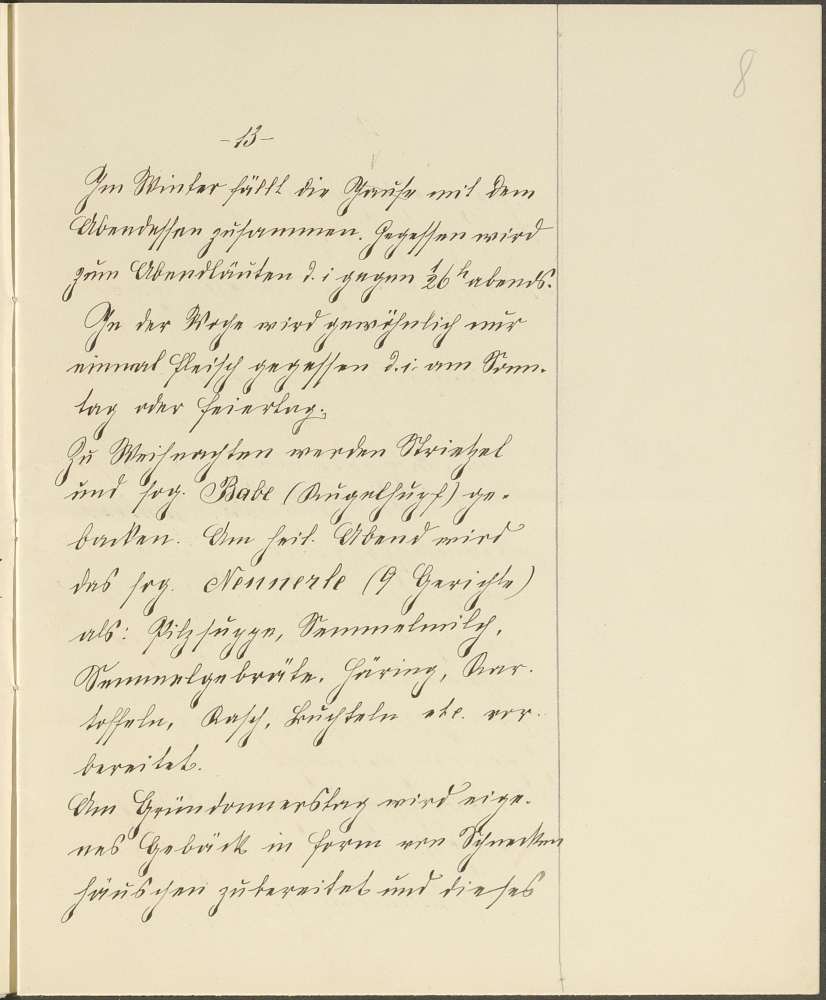 8
-13-
Im Winter fällt die Jause mit dem
Abendessen zusammen. Gegessen wird
zum Abendläuten d. i gegen 1/26 h abends.
In der Woche wird gewöhnlich nur
einmal Fleisch gegessen d. i. am Sonn-
tag oder Feiertag.
Zu Weihnachten werden Strietzel
und sog. Babe (Kugelhupf) ge-
backen. Am heil. Abend wird
das sog. Neunerle (9 Gerichte)
als: Pilzsuppe, Semmelmilch,
Semmelgebräte, Häring, Kar-
toffeln, Kasch, Buchteln etc. vor-
bereitet.
Am Gründonnerstag wird eige-
nes Gebäck in Form von Schnecken
häuschen zubereitet und dieses